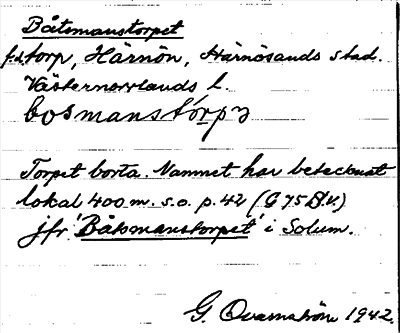 Båtsmanstorpet
f.d. torp, Härnön, Härnösands stad.
Västernorrlands l.
bosmanstórpɜ
Torpet borta. Namnet har betecknat
lokal 400 m. s.o. p. 42 (G 75
jfr 'Båtsmanstorpet' i Solum.
G. Qvarnström 1942.